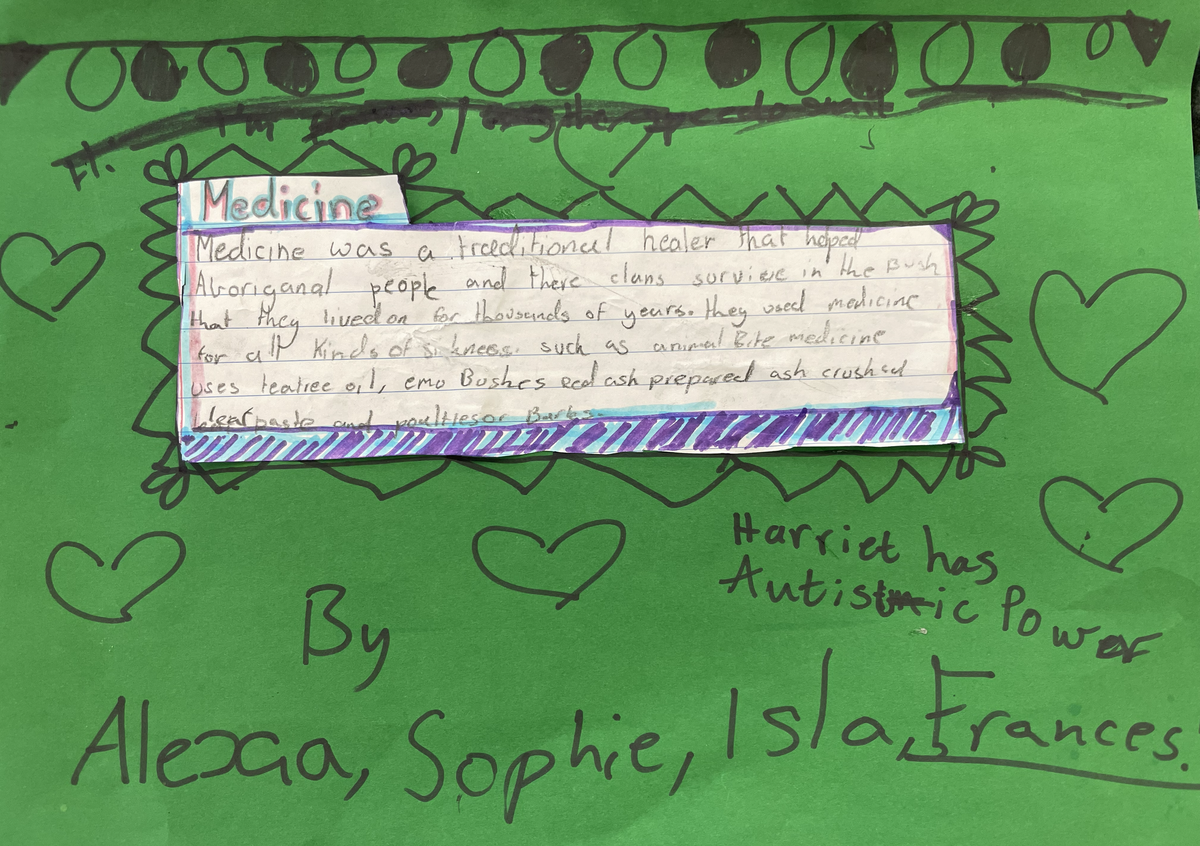 Ft.
Medicine
Medicine was a traeditional healer that helped
Aboriganal people and there clans survive in the Bush
that they lived on for thousands of years. they used medicine
for all kinds of sikness. such as animal Bite medicine
uses teatree oil, emu Bushes red ash prepared ash crushed
leaf paste and poultlesor Barks.
Harriet has
Autistic Power
By
Alexa, Sophie, Isla, Frances.